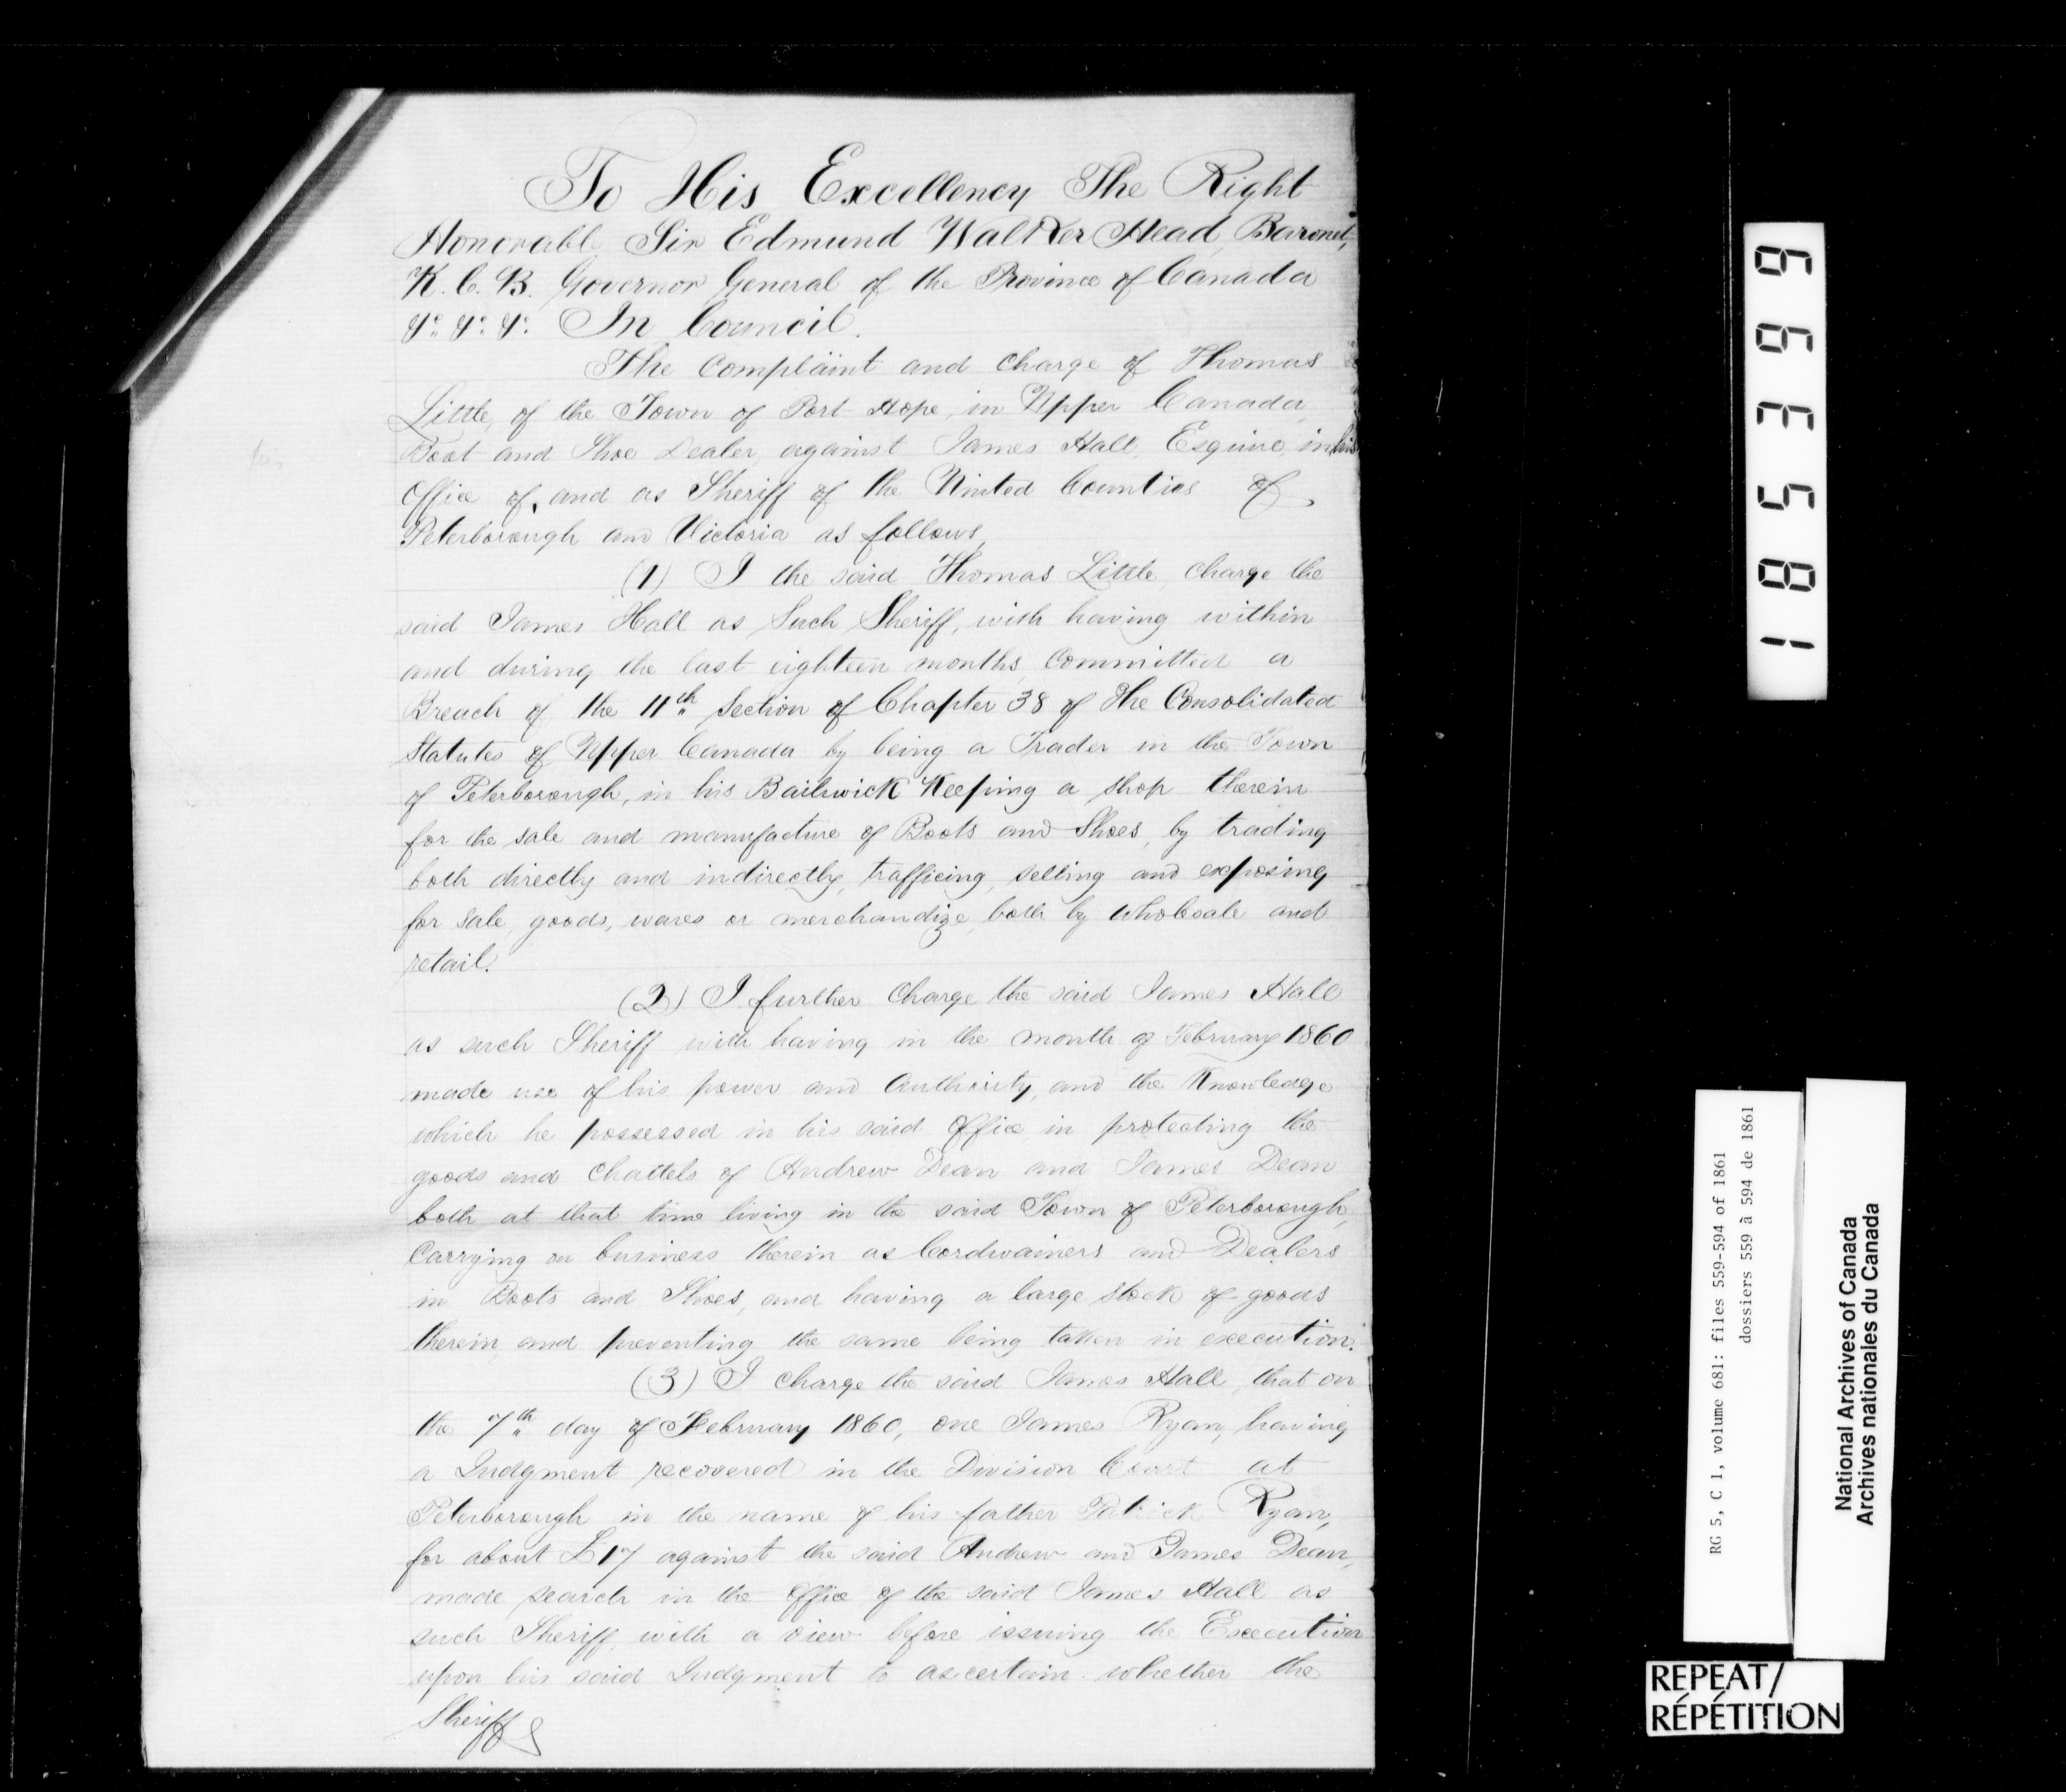 To His Excellency The Right
Honorable Sir Edmund Walker Head, Baronet,
K. C. B. Governor General of the Province of Canada
&c. &c. &c. In Council.
The Complaint and charge of Thomas
Little, of the Town of Port Hope, in Upper Canada,
Boot and Shoe Dealer, against James Hall, Esquire, in his
Office of, and as Sheriff of the United Counties of
Peterborough and Victoria as follows,
(1) I the said Thomas Little, charge the
said James Hall as Such Sheriff, with having within
and during the last eighteen months, Committed a
Breach of the 11th Section of Chapter 38 of The Consolidated
Statutes of Upper Canada by being a Trader in the Town
of Peterborough, in his Bailiwick Keeping a shop therein
for the sale and manufacture of Boots and Shoes, by trading
both directly and indirectly, trafficing, selling and exposing
for sale, goods, wares or merchandize, both by wholesale and
retail.
(2) I further Charge the said James Hall
as such Sheriff with having in the month of February 1860
made use of his power and Authority, and the Knowledge
which he possessed in his said Office, in protecting the
goods and Chattels of Andrew Dean and James Dean
both at that time living in the said Town of Peterborough,
Carrying on business therein as Cordwainers and Dealers
in Boots and Shoes, and having a large stock of goods
therein, and preventing the same being taken in execution.
(3) I charge the said James Hall, that on
the 7th day of February 1860, one James Ryan, having
a Judgment recovered in the Division Court at
Peterborough in the name of his father Patrick Ryan,
for about £17 against the said Andrew and James Dean,
made search in the Office of the said James Hall as
such Sheriff, with a view before issuing the Execution
upon his said Judgment to ascertain whether the
Sheriff
185399
RG 5, C 1, volume 681: files 559-594 of 1861
dossiers 559 à 594 de 1861
National Archives of Canada
Archives nationales du Canada
REPEAT/
RÉPÉTITION